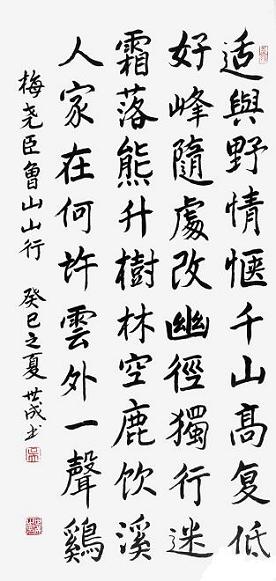 适與野情惬千山高复低
好峰隨處改幽徑獨行迷
霜落熊升樹林空鹿饮溪
人家在何許雲外一聲鷄
梅尧臣魯山山行 癸巳之夏 世成书